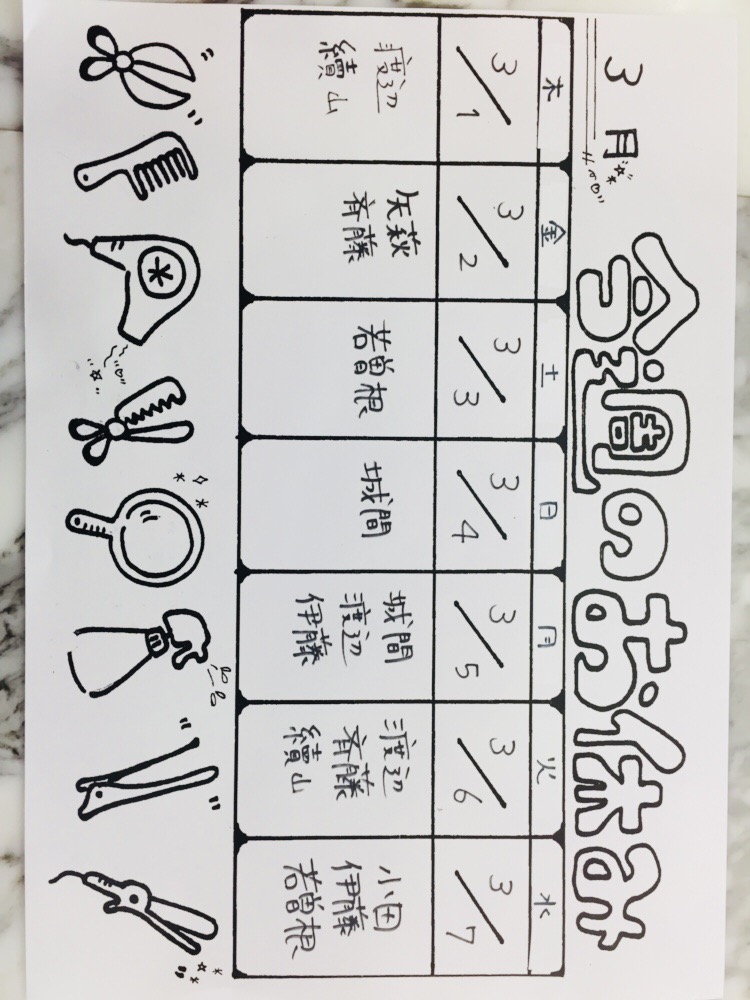 3月
今週のお休み
木 金 土 日 月 火 水
3/1 3/2 3/3 3/4 3/5 3/6 3/7
渡辺
續山
矢萩
斉藤
若曽根
城間
城間
渡辺
伊藤
渡辺
斉藤
續山
小田
伊藤
若曽根